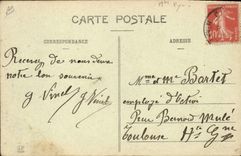 CARTE POSTALE
CORRESPONDANCE
ADRESSE
Recevez de nous deux
notre bon souvenir
g Vinel g Vinel
Mme et Mr Bartet
employé d'octroi
Rue Bernard Mulé
Toulouse
Hte Gne